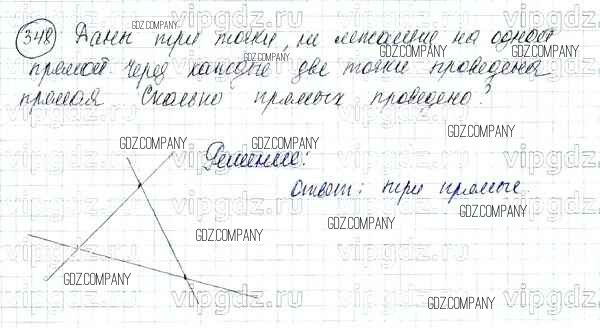 348 Даны три точки, не лежащие на одной
прямой. Через каждые две точки проведена
прямая. Сколько прямых проведено?
Решение:
Ответ: три прямые
GDZ.COMPANY
vipgdz.ru